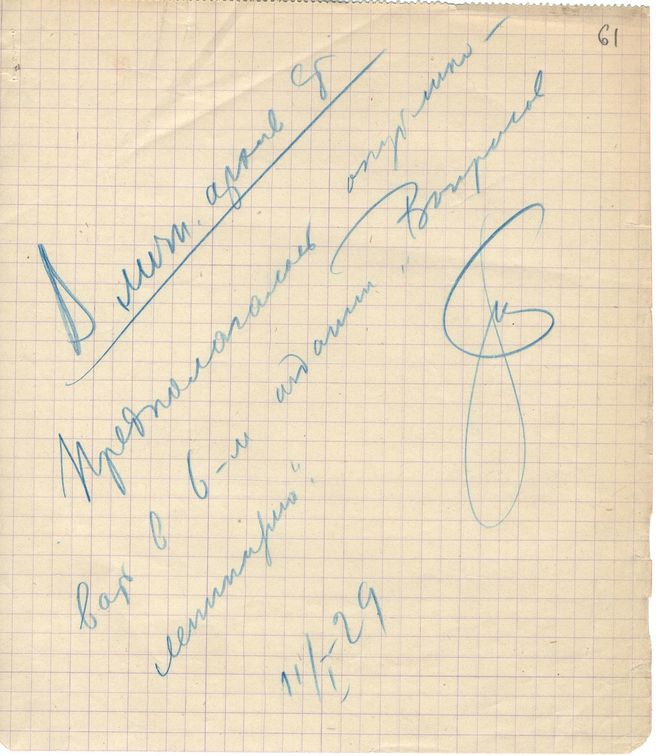 61
В лит. архив Ст
Предполагалось опублико-
вать в 6-м издании „Вопросов
ленинизма".
11/I-29